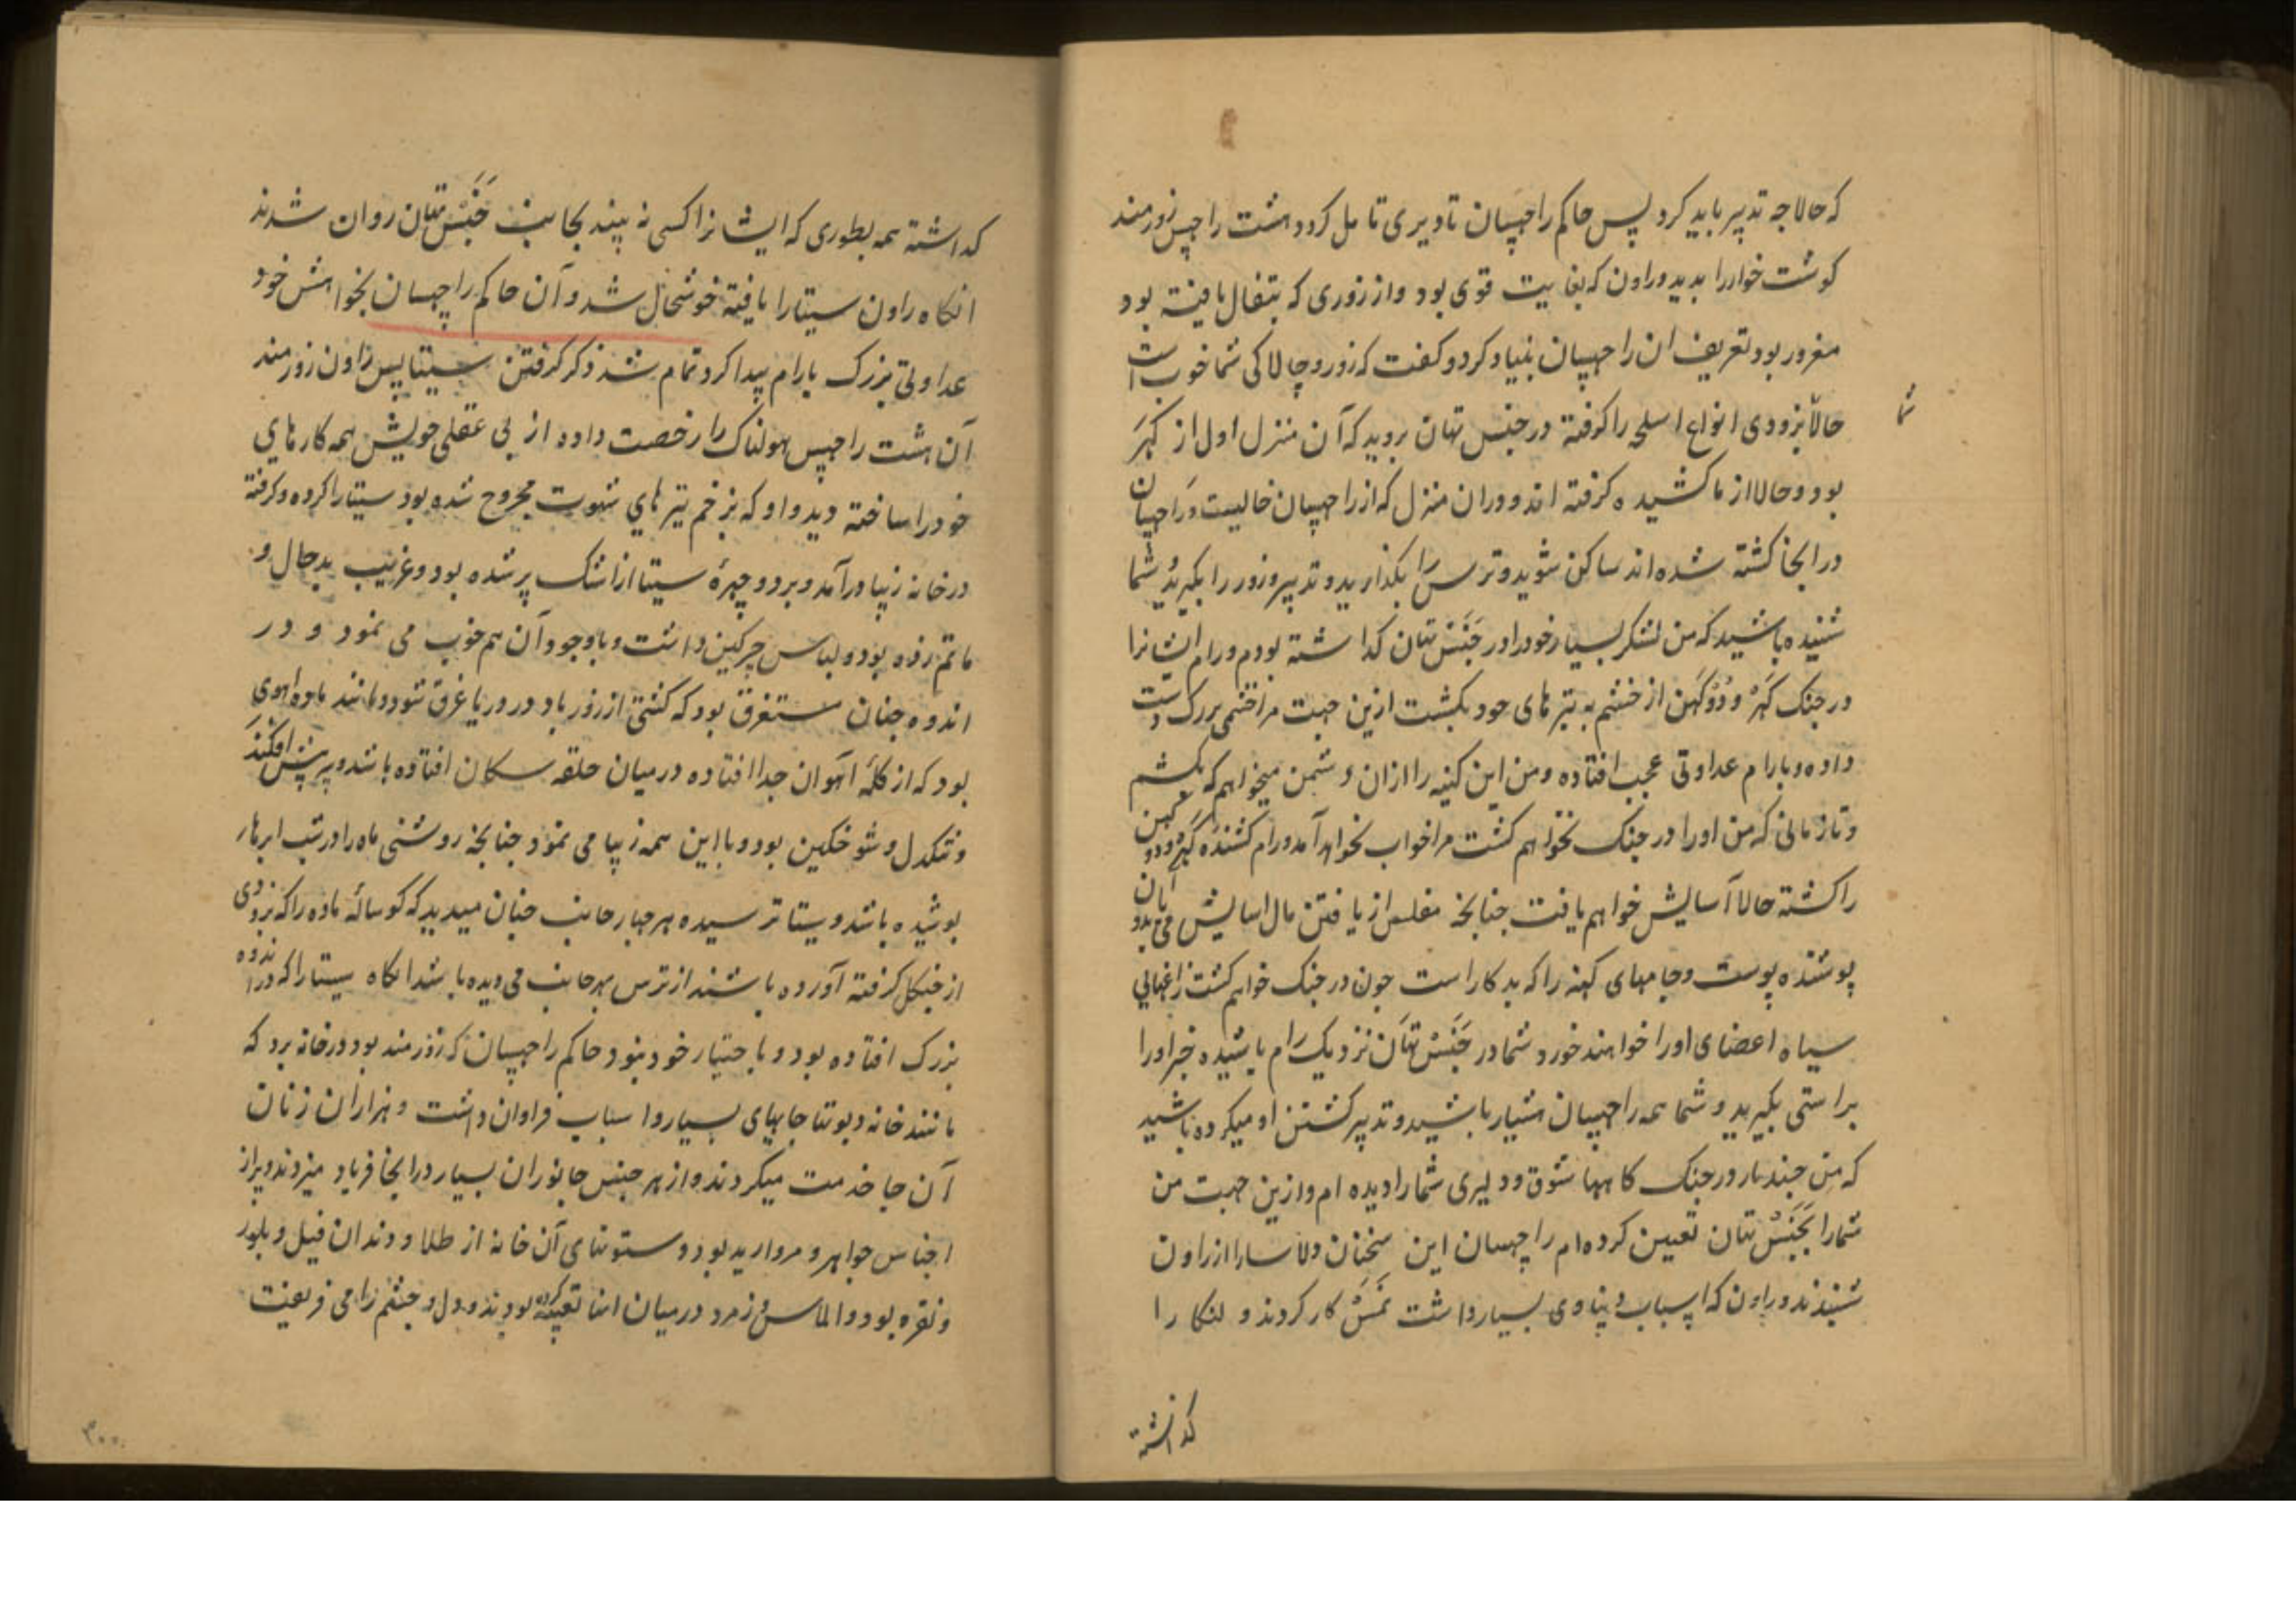 که حالا چه تدبیر باید کرد پس حاکم راچهسان تا دیری تامل کرد و هشت راچهس زورمند
کوشت خوار را بدید و راون که بغایت قوی بود و از زوری که بتفال یافته بود
مغرور بود تعریف ان راچهسان بنیاد کرد و کفت که زور و چالاکی شما خوب است
شما
حالا بزودی انواع اسلحه را کرفته در جنس تهان بروید که آن منزل اول از کهر
بود و حالا از ما کشیده کرفته اند و دران منزل که از راچهسان خالیست و راچهسان
در انجا کشته شده اند ساکن شوید و ترس را بکذارید و تدبیر و زور را بکیرید شما
شنیده باشید که من لشکر بسیار خود را در جَنَسْ تهان کذاشته بودم و رام ایشانرا
در جنک کهَرْ و دُوکهَن از خشم به تیر های خود بکشت ازین جهت مرا خشمی بزرک دست
داده و بارام عداوتی عجب افتاده و من این کینه را ازان دشمن میخواهم که بکشم
و تا زمانی که من او را در جنک نخواهم کشت مرا خواب نخواهد آمد و رام کشنده کهر و دوکهن
را کشته حالا آسایش خواهم یافت چنانچه مفلس از یافتن مال اسایش می یابد و ان
پوشنده پوست و جامهای کهنه را که بد کار است چون در جنک خواهم کشت زاغهای
سیاه اعضای او را خواهند خورد شما در جَنَسْ تهَان نزدیک رام باشیده خبر او را
براستی بکیرید و شما همه راچهسان هشیار باشید و تدبیر کشتن او میکرده باشید
که من چند بار در جنک کاهها شوق و دلیری شما را دیده ام و ازین جهت من
شما را بجَنَسْ تهان تعیین کرده ام راچهسان این سخنان دلاسا را از راون
شنیدند و راون که اسباب دنیاوی بسیار داشت نَمَسْ کار کردند و لنکا را
کذاشته
کذاشته همه بطوری که ایشانرا کسی نه بیند بجانب جَنَسْ تهان روان شدند
انکاه راون سیتا را یافته خوشحال شد و آن حاکم راچهسان بخواهش خود
عداوتی بزرک بارام پیدا کرد تمام شد ذکر کرفتن سیتا پس راون زورمند
آن هشت راچهس هولناک را رخصت داده از بی عقلی خویش همه کارهای
خود را ساخته دید و او که بزخم تیر های شهوت مجروح شده بود سیتا را کرده و کرفته
در خانه زیبا در آمد و برد و چهرهٔ سیتا از اشک پر شده بود و غریب بد حال و
ماتم زده بود و لباس چرکین داشت و با وجود آن هم خوب می نمود و در
اندوه چنان مستغرق بود که کشتی از زور باد در دریا غرق شود و مانند ماده اهوی
بود که از کلهٔ اهوان جدا افتاده در میان حلقه سکان افتاده باشد و سر پیش افکنده
و تنکدل و شوخکین بود و با این همه زیبا می نمود چنانچه روشنی ماه را در شب ابرها
پوشیده باشد و سیتا ترسیده هر چهار جانب چنان میدید که کوسالهٔ ماده را که بزودی
از جنکل کرفته آورده باشند از ترس هر جانب می دیده باشد انکاه سیتا را که در اندوه
بزرک افتاده بود و با ختیار خود نبود حاکم راچهسان که زورمند بود در خانه برد که
مانند خانه دیوتا جاهای بسیار و اسباب فراوان داشت و هزاران زنان
آن جا خدمت میکردند و از هر جنس جانوران بسیار در انجا فریاد میزدند و پر از
اجناس جواهر و مروارید بود و ستونهای آن خانه از طلا و دندان فیل و بلور
و نقره بود و الماس و زمرد در میان انها تعبیه کرده بودند و دل و چشم را می فریفت
۳۰۰